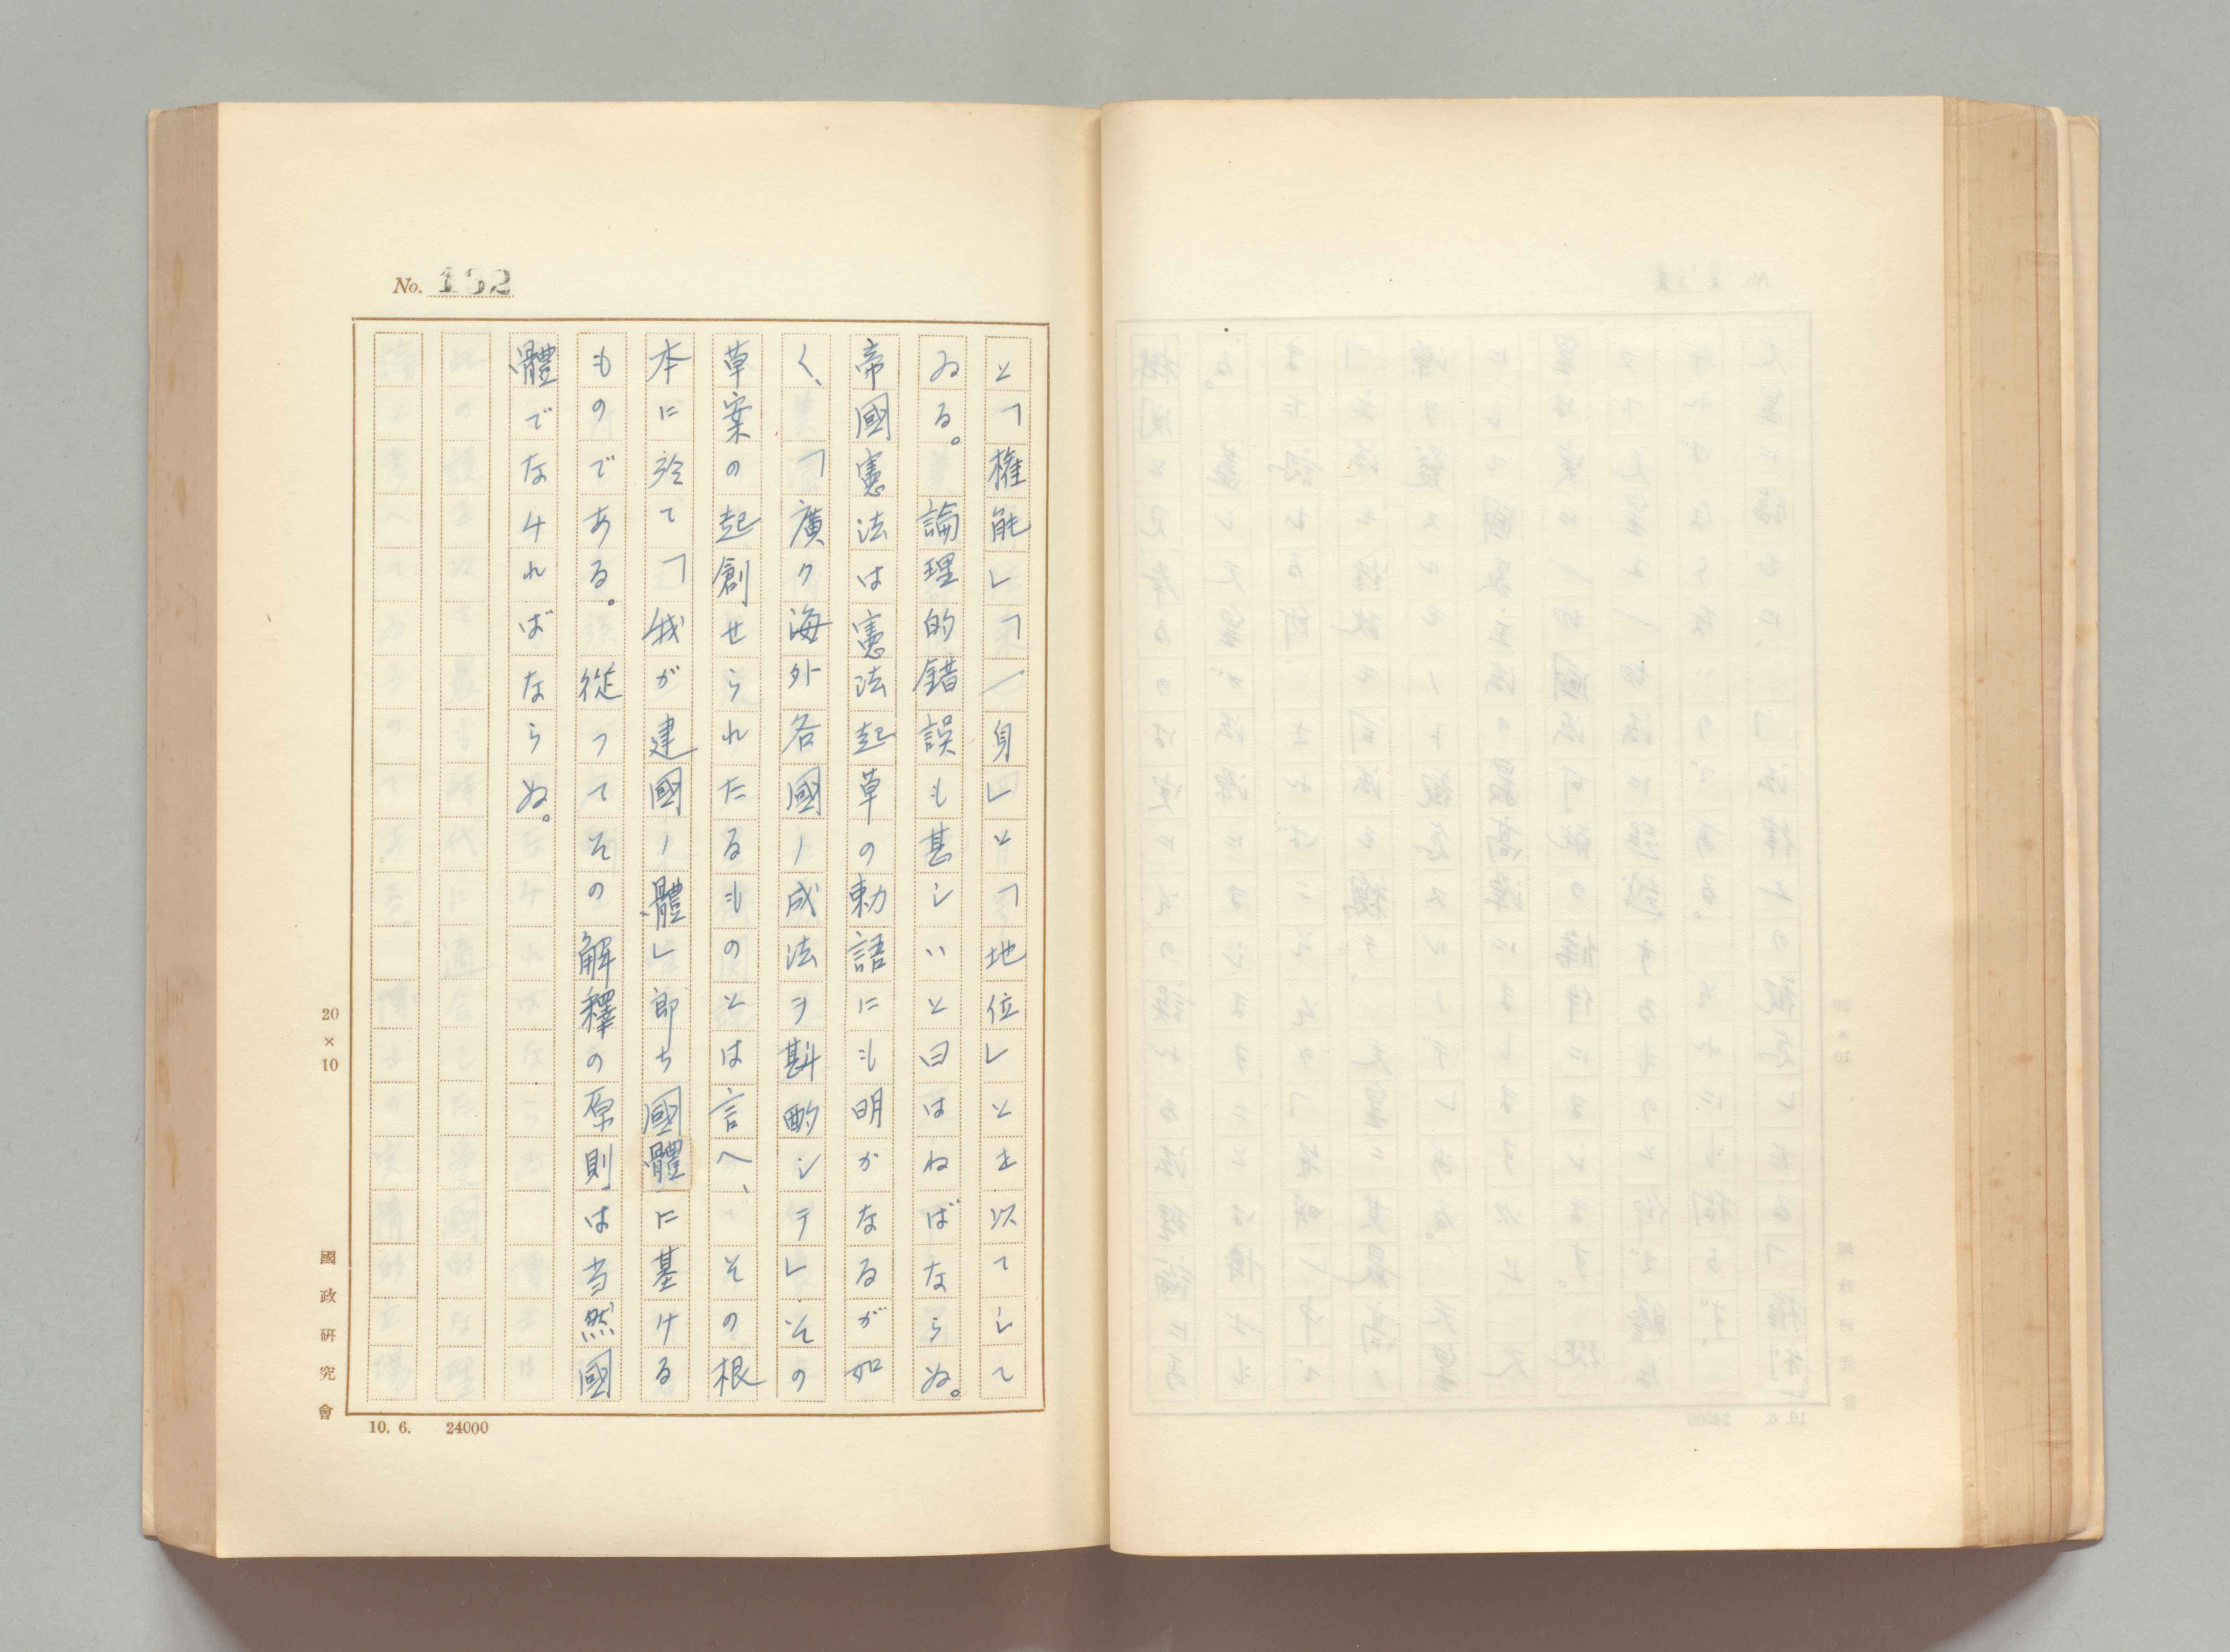 No. 132
と「権能」「一身」と「地位」とを以てして
ゐる。論理的錯誤も甚しいと曰はねばならぬ。
帝國憲法は憲法起草の勅語にも明かなるが如
く、「廣ク海外各國ノ成法ヲ斟酌シテ」その
草案の起創せられたるものとは言へ、その根
本に於て「我が建國ノ體」即ち國體に基ける
ものである。従つてその解釋の原則は当然國
體でなければならぬ。
20×10
國政研究會
10. 6. 24000